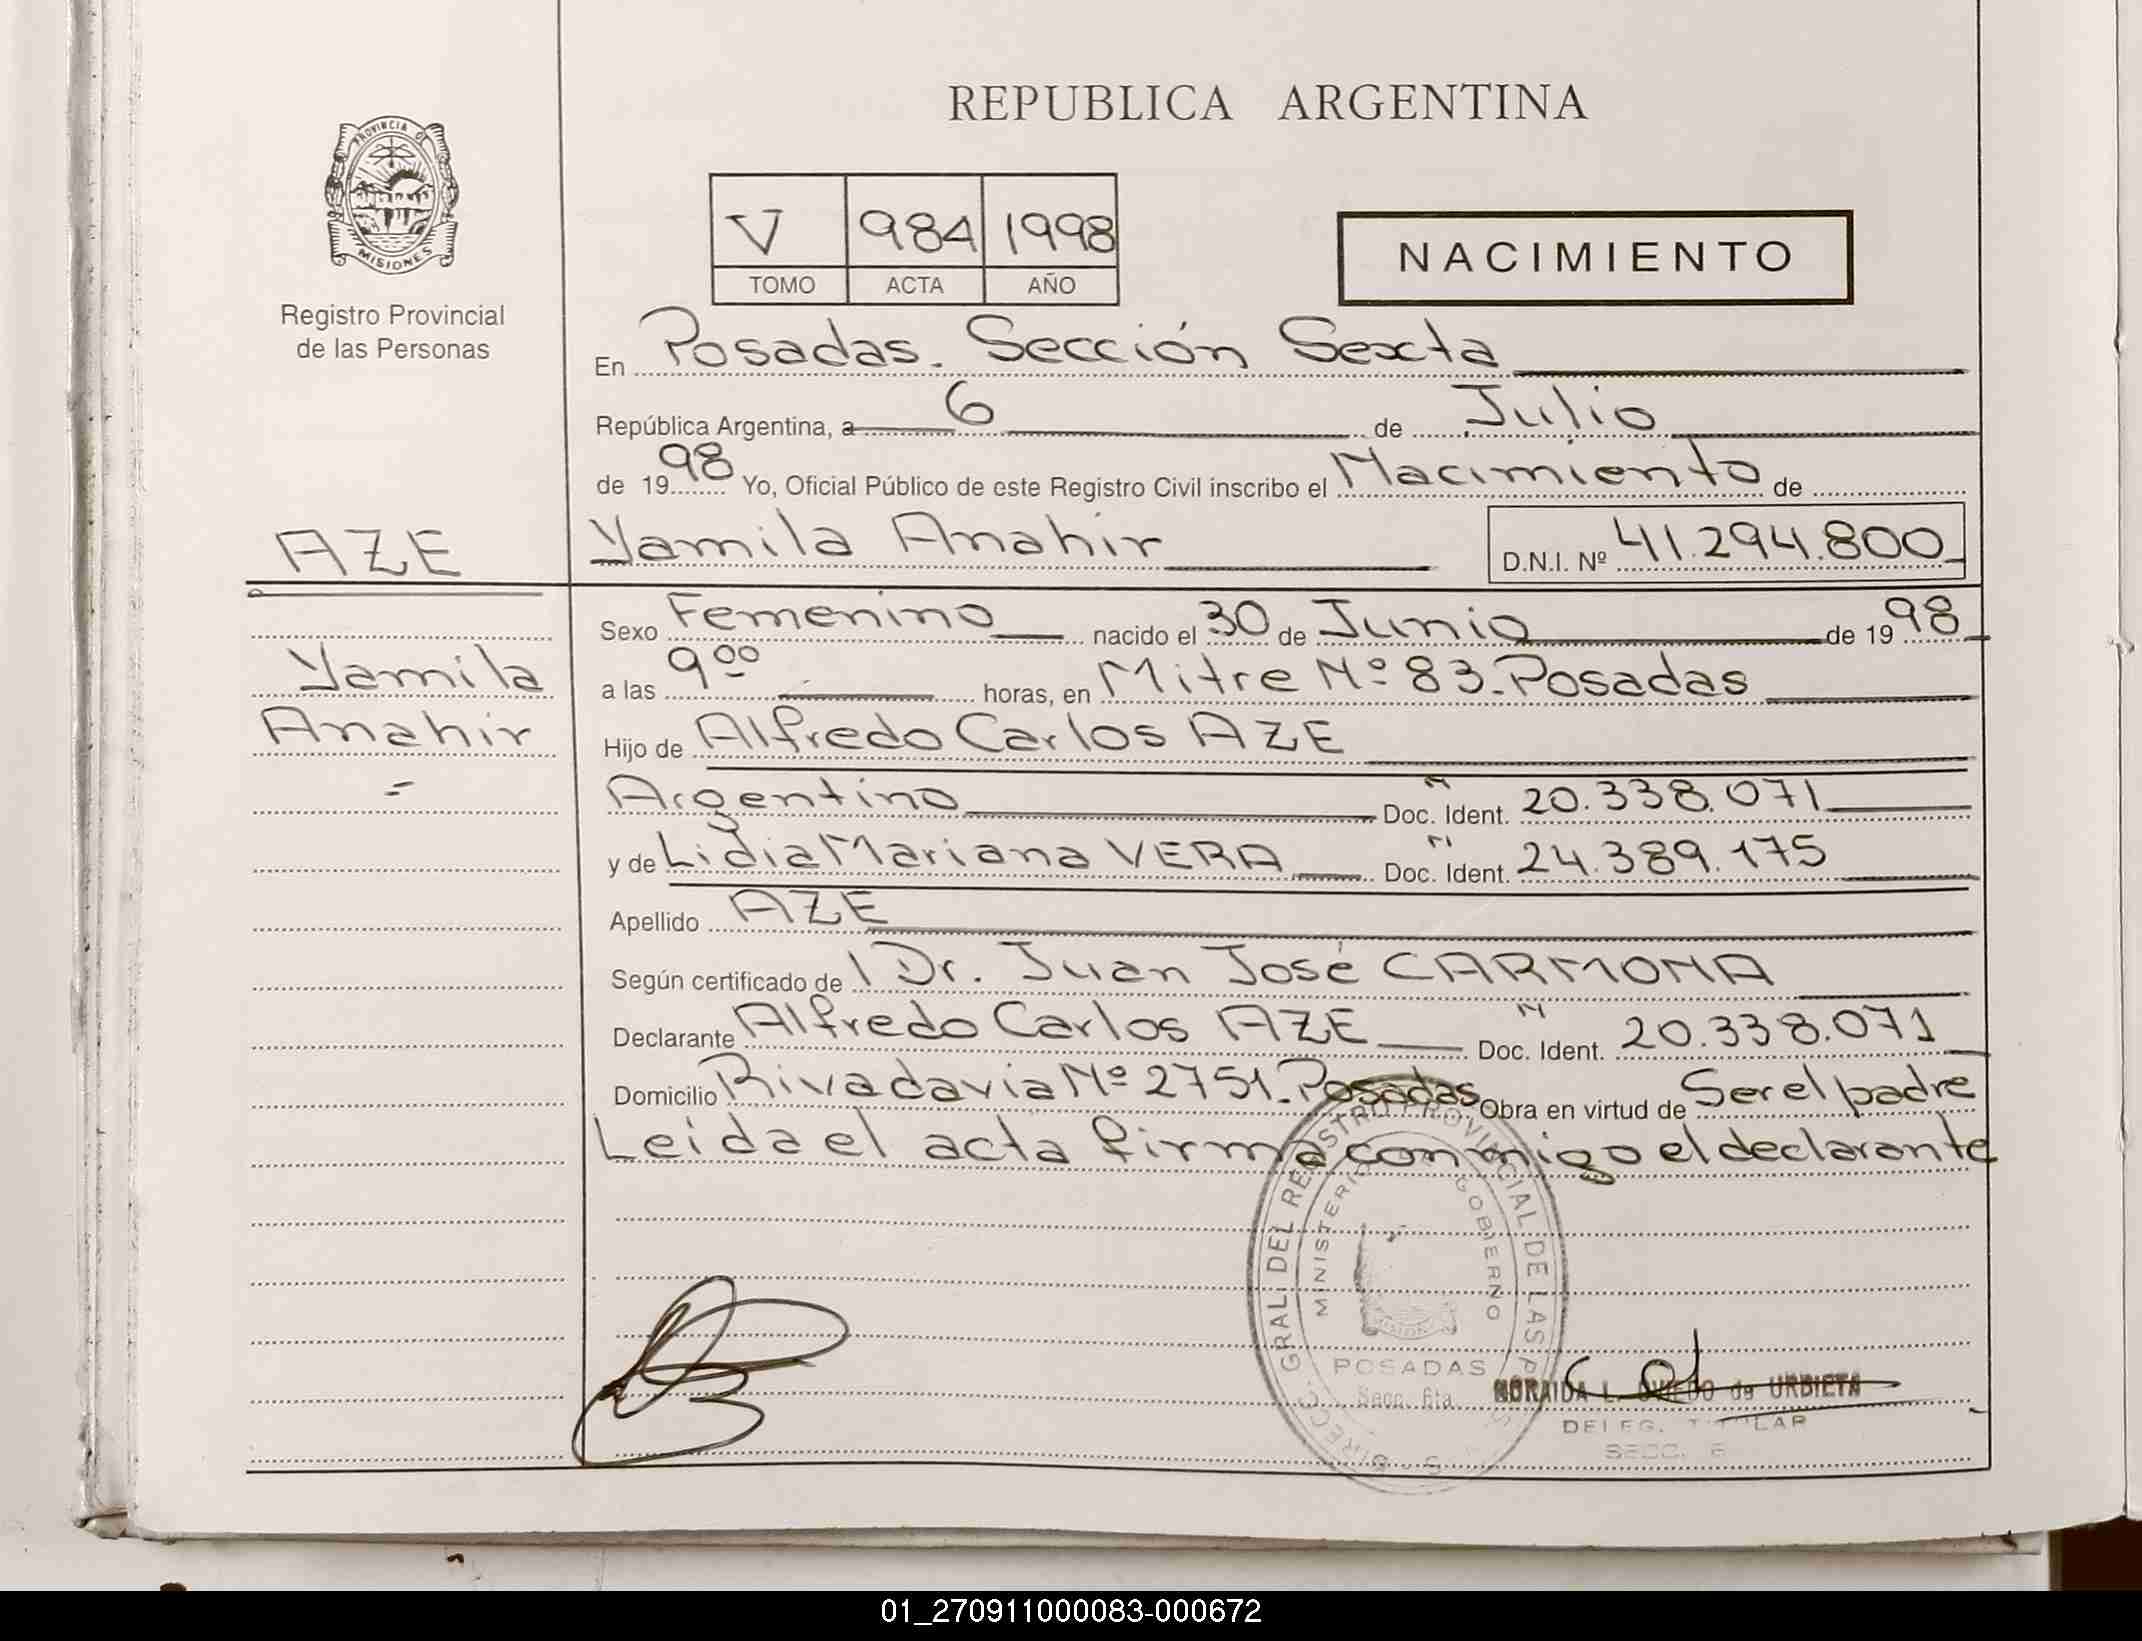 REPUBLICA ARGENTINA
PROVINCIA DE
MISIONES
Registro Provincial
de las Personas
V 984 1998
TOMO ACTA AÑO
NACIMIENTO
En Posadas. Sección Sexta
República Argentina, a 6 de Julio
de 1998 Yo, Oficial Público de este Registro Civil inscribo el Nacimiento de
AZE
Yamila Anahir D.N.I. Nº 41.294.800
Sexo Femenino nacido el 30 de Junio de 1998
Yamila
a las 9 00 horas, en Mitre Nº 83. Posadas
Anahir
Hijo de Alfredo Carlos AZE
=
Argentino Doc. Ident. N 20.338.071
y de Lidia Mariana VERA Doc. Ident. N 24.389.175
Apellido AZE
Según certificado de l Dr. Juan José CARMONA
Declarante Alfredo Carlos AZE Doc. Ident. N 20.338.071
Domicilio Rivadavia Nº 2751. Posadas Obra en virtud de Ser el padre
Leida el acta firma conmigo el declarante
DIRECC. GRAL. DEL REGISTRO PROVINCIAL DE LAS
MINISTERIO GOBIERNO
MISIONES
POSADAS
Secc. 6ta.
NORAIDA L. OVIEDO de URBIETA
DELEG. TITULAR
SECC. 6
01_270911000083-000672